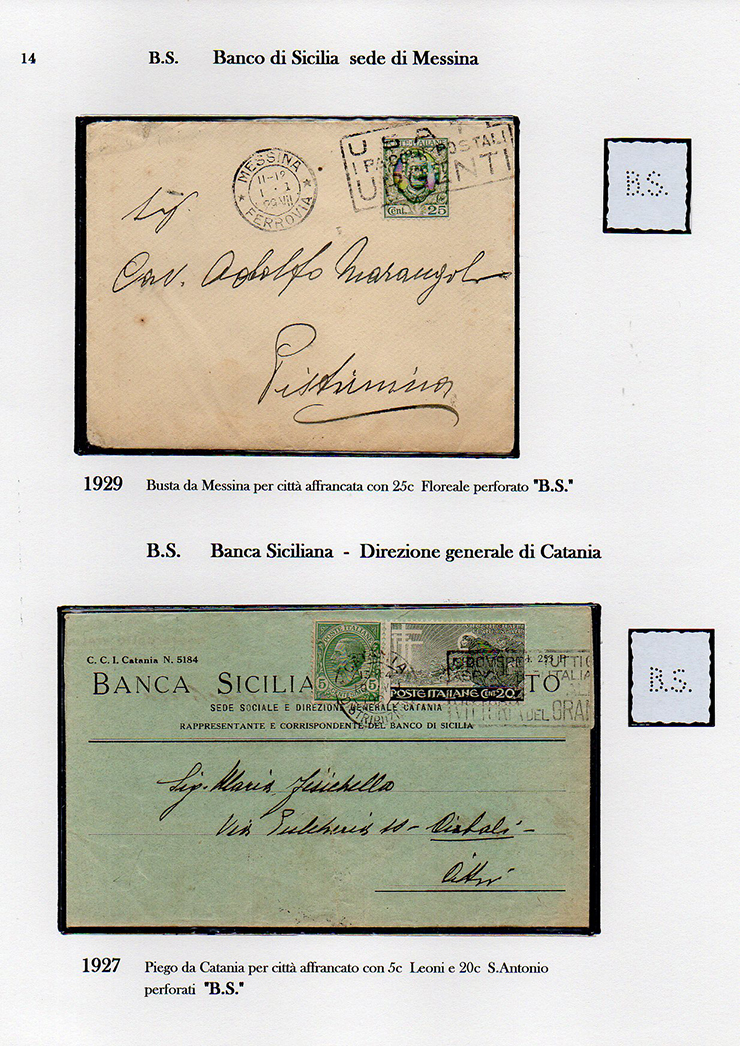 14
B.S. Banco di Sicilia sede di Messina
MESSINA
11-12
1
29 VII
FERROVIA
I PACCHI POSTALI
URGENTI
Cent. 25
B.S.
Sig.
Cav. Adolfo Marangolo
1929 Busta da Messina per città affrancata con 25c Floreale perforato "B.S."
B.S. Banca Siciliana - Direzione generale di Catania
C. C. I. Catania N. 5184
POSTE ITALIANE
5 5
POSTE ITALIANE Cent 20
TUTTI
ITALIA
VITTORIA DEL GRANO
BANCA SICILIANA
SEDE SOCIALE E DIREZIONE GENERALE CATANIA
RAPPRESENTANTE E CORRISPONDENTE DEL BANCO DI SICILIA
B.S.
Sig. Maria Fisichella
Via Pulcheria 10 - Cibali -
Città
1927 Piego da Catania per città affrancato con 5c Leoni e 20c S.Antonio
perforati "B.S."